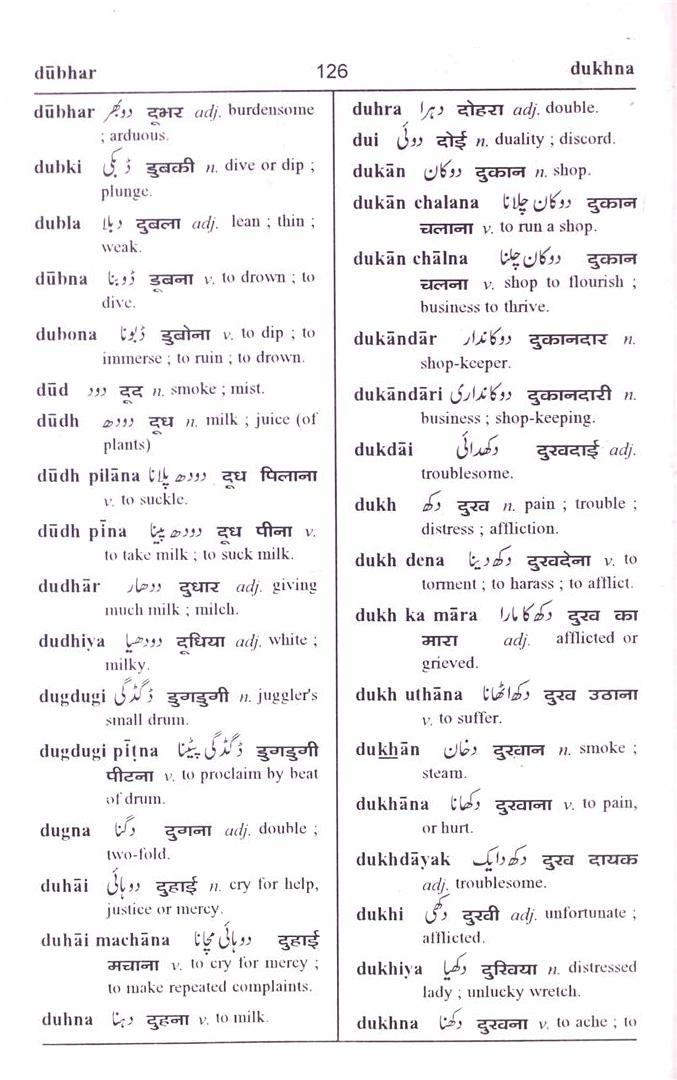 dūbhar
126
dukhna
dūbhar دوبھر दूभर adj. burdensome
; arduous.
dubki ڈبکی डुबकी n. dive or dip ;
plunge.
dubla دبلا दुबला adj. lean ; thin ;
weak.
dūbna ڈوبنا डूबना v. to drown ; to
dive.
dubona ڈبونا डुबोना v. to dip ; to
immerse ; to ruin ; to drown.
dūd دود दूद n. smoke ; mist.
dūdh دودھ दूध n. milk ; juice (of
plants)
dūdh pilāna دودھ پلانا दूध पिलाना
v. to suckle.
dūdh pīna دودھ پینا दूध पीना v.
to take milk ; to suck milk.
dudhār دودھار दुधार adj. giving
much milk ; milch.
dudhiya دودھیا दूधिया adj. white ;
milky.
dugdugi ڈگڈگی डुगडुगी n. juggler's
small drum.
dugdugi pīṭna ڈگڈگی پیٹنا डुगडुगी
पीटना v. to proclaim by beat
of drum.
dugna دگنا दुगना adj. double ;
two-fold.
duhāi دوہائی दुहाई n. cry for help,
justice or mercy.
duhāi machāna دوہائی مچانا दुहाई
मचाना v. to cry for mercy ;
to make repeated complaints.
duhna دہنا दुहना v. to milk.
duhra دہرا दोहरा adj. double.
dui دوئی दोई n. duality ; discord.
dukān دوکان दुकान n. shop.
dukān chalana دوکان چلانا दुकान
चलाना v. to run a shop.
dukān chālna دوکان چلنا दुकान
चलना v. shop to flourish ;
business to thrive.
dukāndār دوکاندار दुकानदार n.
shop-keeper.
dukāndāri دوکانداری दुकानदारी n.
business ; shop-keeping.
dukdāi دکھدائی दुखदाई adj.
troublesome.
dukh دکھ दुख n. pain ; trouble ;
distress ; affliction.
dukh dena دکھ دینا दुखदेना v. to
torment ; to harass ; to afflict.
dukh ka māra دکھ کا مارا दुख का
मारा adj. afflicted or
grieved.
dukh uthāna دکھ اٹھانا दुख उठाना
v. to suffer.
dukhān دخان दुखान n. smoke ;
steam.
dukhāna دکھانا दुखाना v. to pain,
or hurt.
dukhdāyak دکھ دایک दुख दायक
adj. troublesome.
dukhi دکھی दुखी adj. unfortunate ;
afflicted.
dukhiya دکھیا दुखिया n. distressed
lady ; unlucky wretch.
dukhna دکھنا दुखना v. to ache ; to